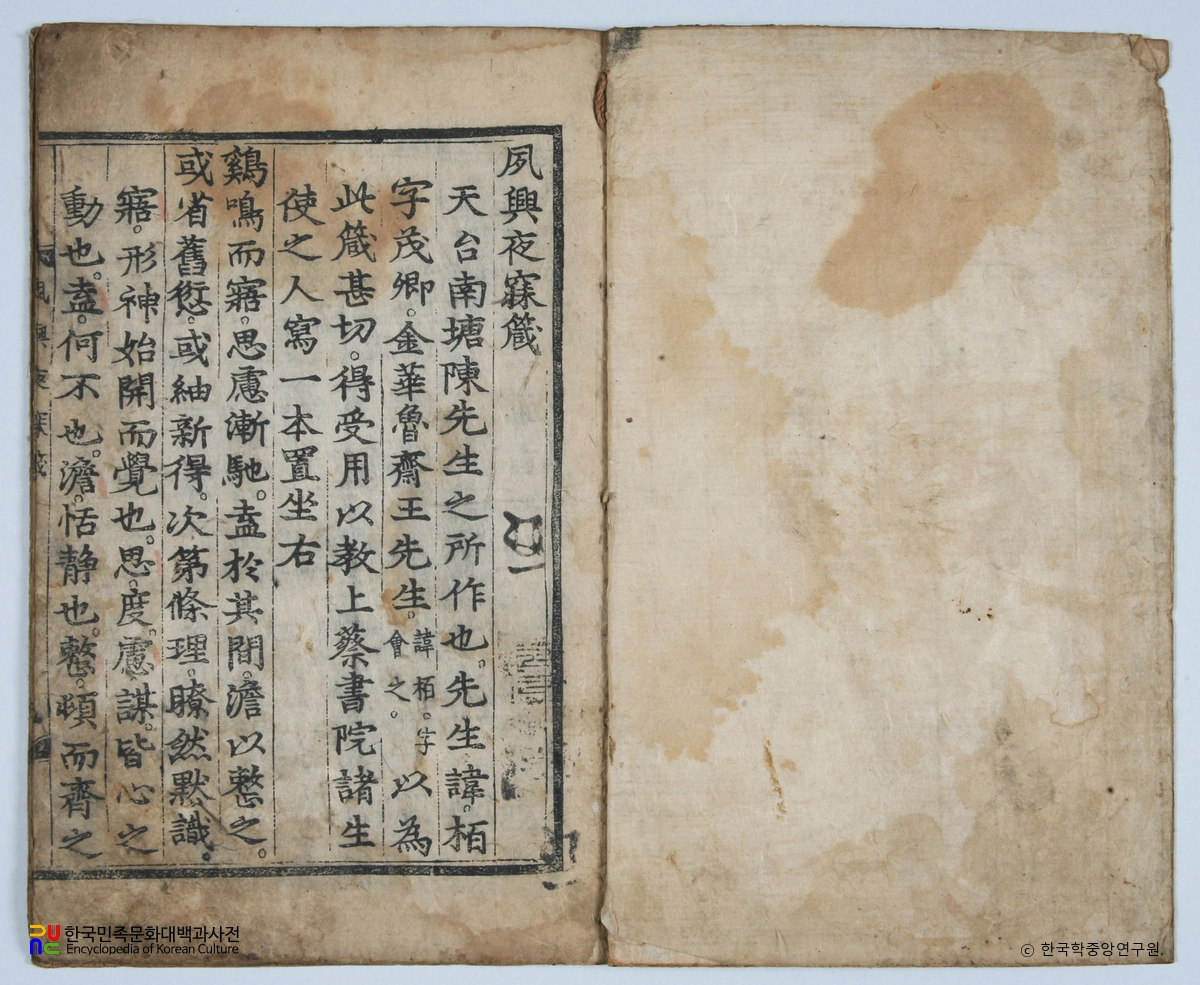 夙興夜寐箴
天台南塘陳先生之所作也。先生諱。栢
字茂卿。金華魯齋王先生。諱栢。字會之。以為
此箴甚切。得受用以教上蔡書院諸生
使之人寫一本置坐右
鷄鳴而寤。思慮漸馳。盍於其間。澹以整之。
或省舊愆。或紬新得。次第條理。瞭然默識。
寤。形神始開而覺也。思。度。慮。謀。皆心之
動也。盍。何不也。澹。恬静也。整。頓而齊之
夙興夜寐箴
한국민족문화대백과사전
Encyclopedia of Korean Culture
ⓒ 한국학중앙연구원.